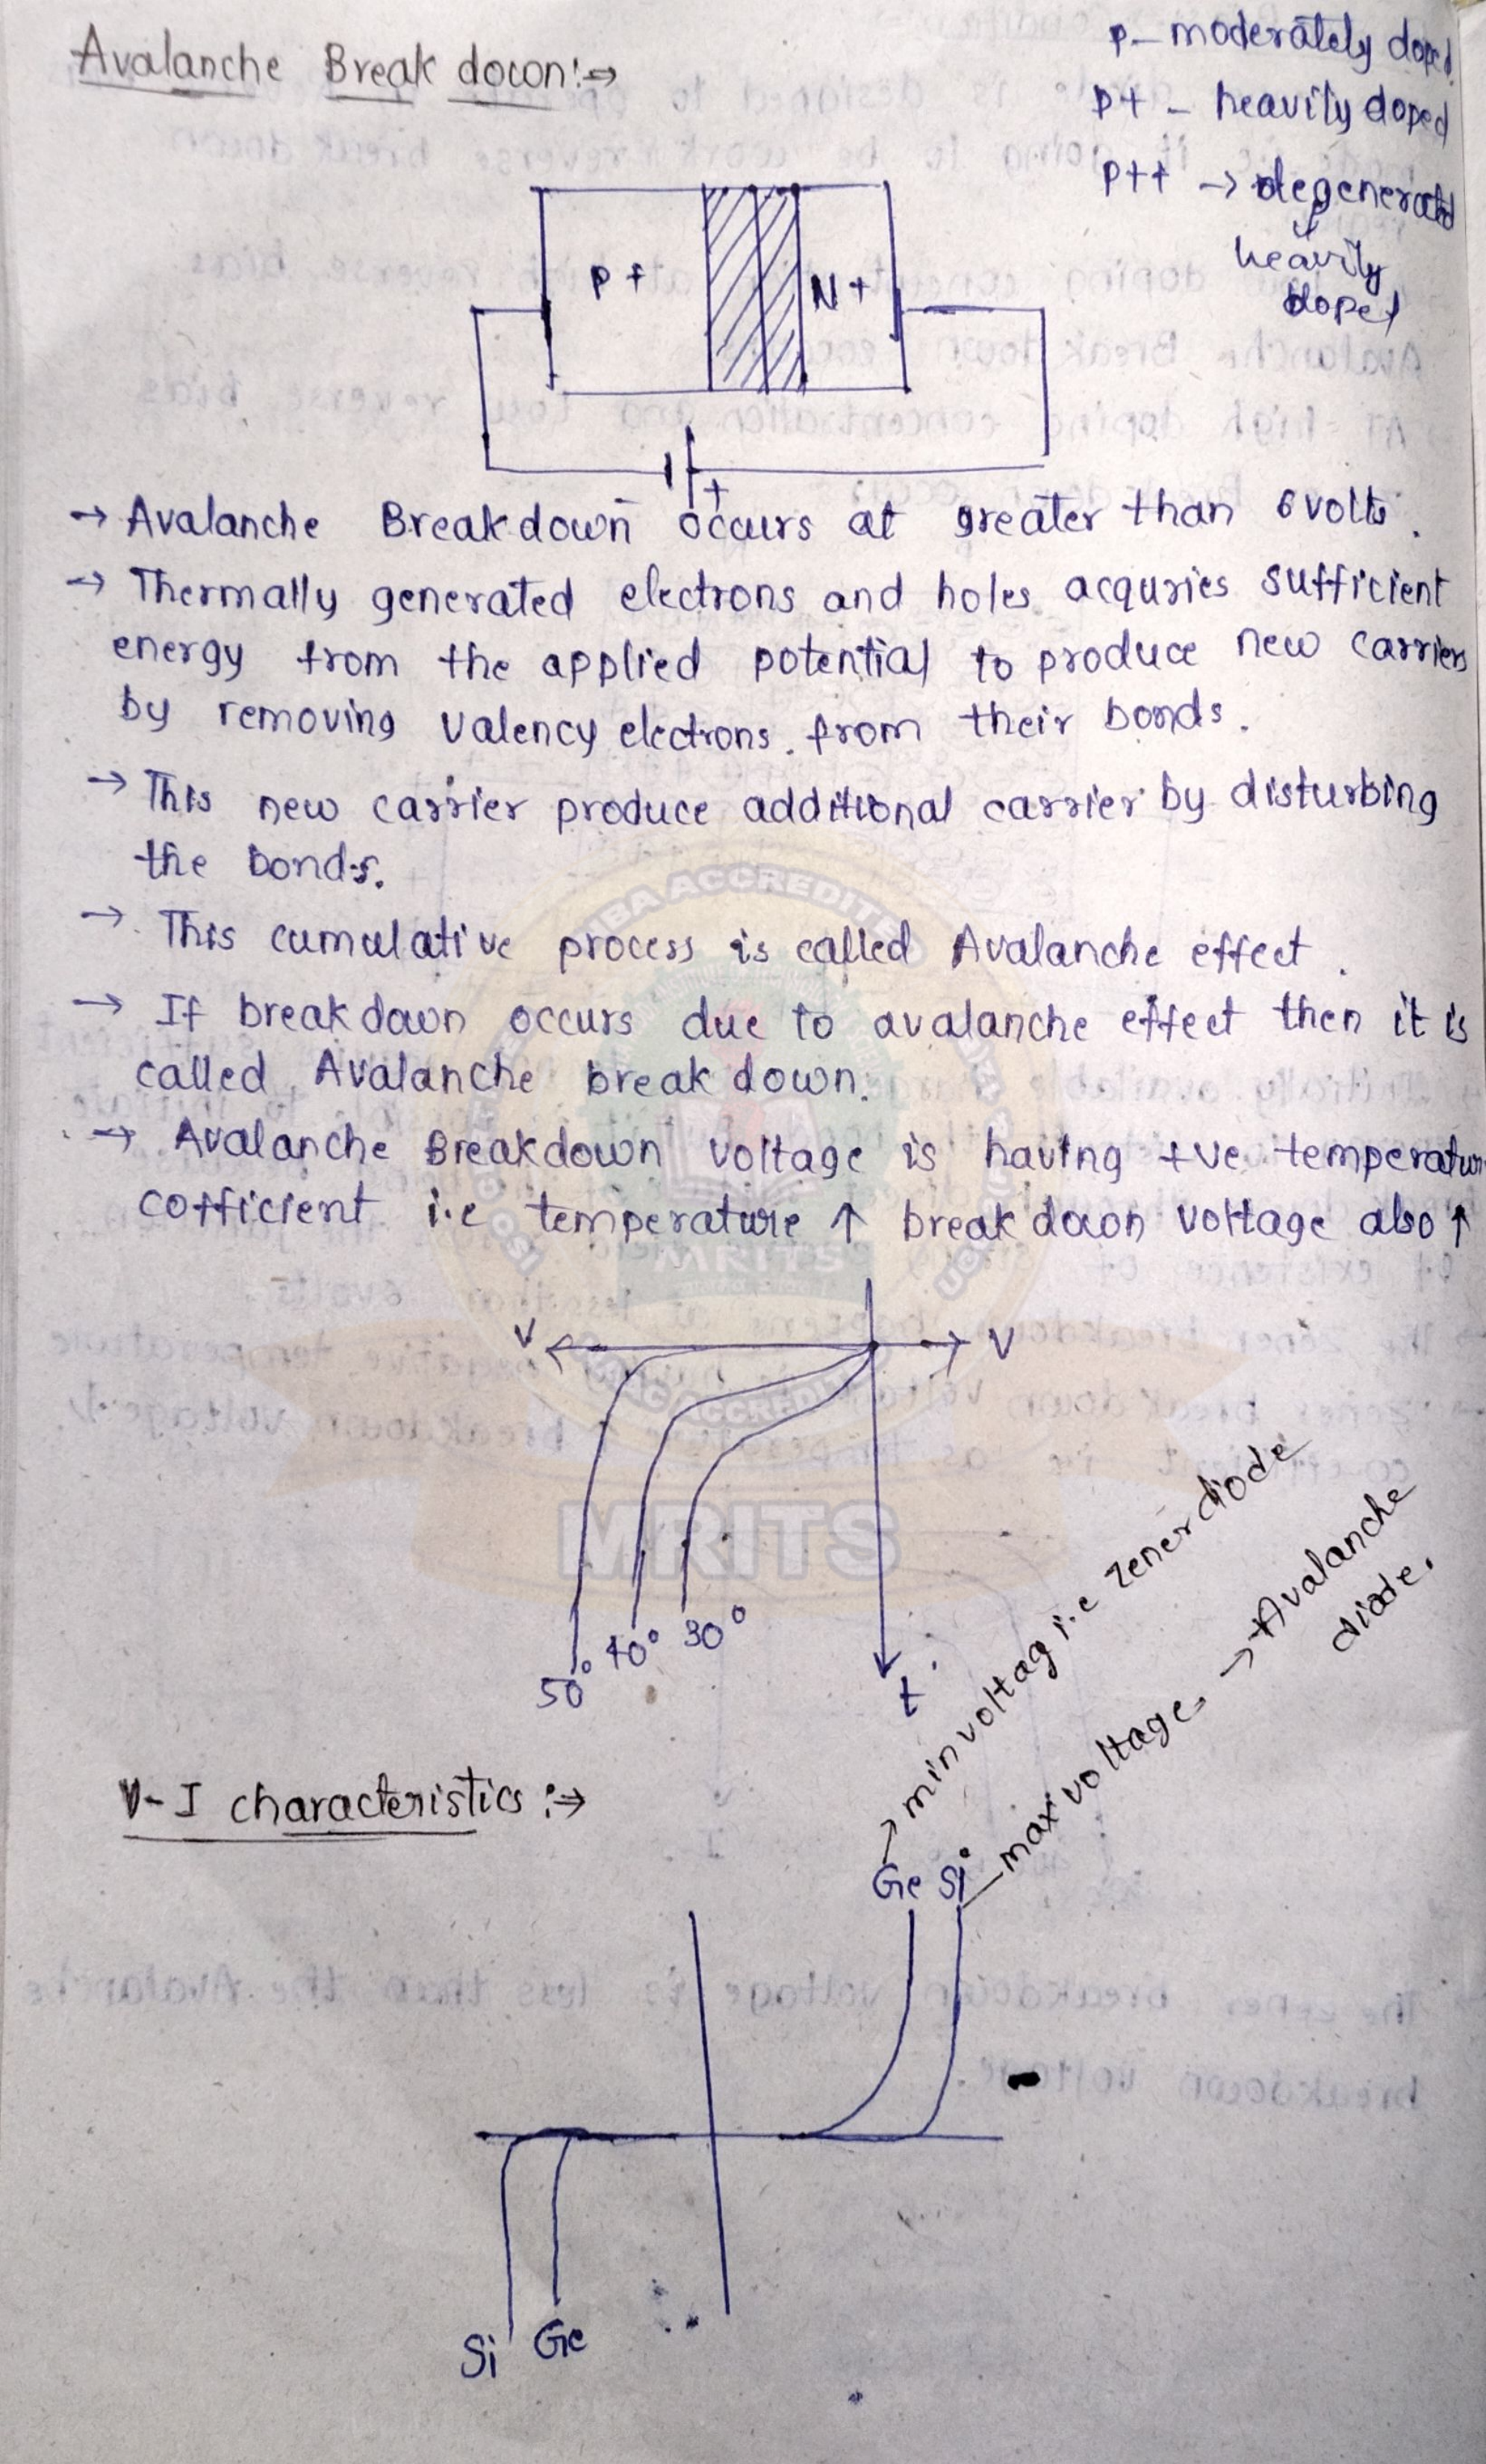 Avalanche Break down:⇒
p - moderately doped
p+ - heavily doped
p++ → degenerated
heavily
doped
P+
N+
- +
→ Avalanche Breakdown occurs at greater than 6 volts.
→ Thermally generated electrons and holes acquries sufficient
energy from the applied potential to produce new carriers
by removing valency electrons from their bonds.
→ This new carrier produce additional carrier by disturbing
the bonds.
→ This cumulative process is called Avalanche effect.
→ If breakdown occurs due to avalanche effect then it is
called Avalanche break down.
→ Avalanche Breakdown voltage is having +ve temperature
cofficient i.e temperature ↑ break down voltage also ↑
MRITS
V
V
ACCREDITED
MRITS
50° 40° 30°
t
V-I characteristics :→
→ min voltag i.e zener diode
max voltage → Avalanche
diode.
Ge Si
Si Ge